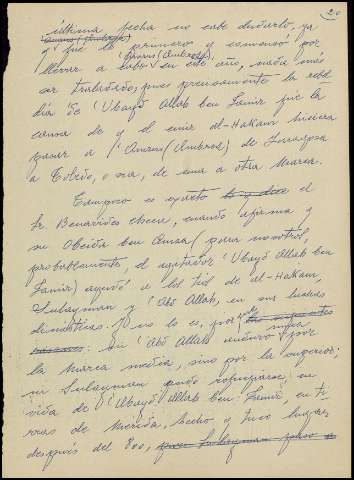 2
última fecha en este dudarlo, ya
fué lo primero y comenzó por
llevar a en este año, nada más
ser trasladado; pues precisamente la rebe
día de 'Ubayd Allah ben Jamir fué la
causa de q el emir al-Hakam hiciera
pasar a 'Amrus (Ambroz) de Zaragoza
a Toledo, o sea, de una a otra Marca.
Tampoco es exacto el
Sr. Benavides cuando afirma q
su Obeida ben Amza (para nosotros,
probablemente, el agitador 'Ubayd Allah ben
Jamir) ayudó a los tíos de al-Hakam,
Sulayman y 'Abd Allah, en sus luchas
dinásticas. Y no lo es, porque
: ni 'Abd Allah anduvo nunca por
la Marca media, sino por la superior;
ni Sulayman pudo refugiarse, en
vida de 'Ubayd Allah ben Jamir, en tie
rras de Mérida, hecho q tuvo lugar
después del 800,